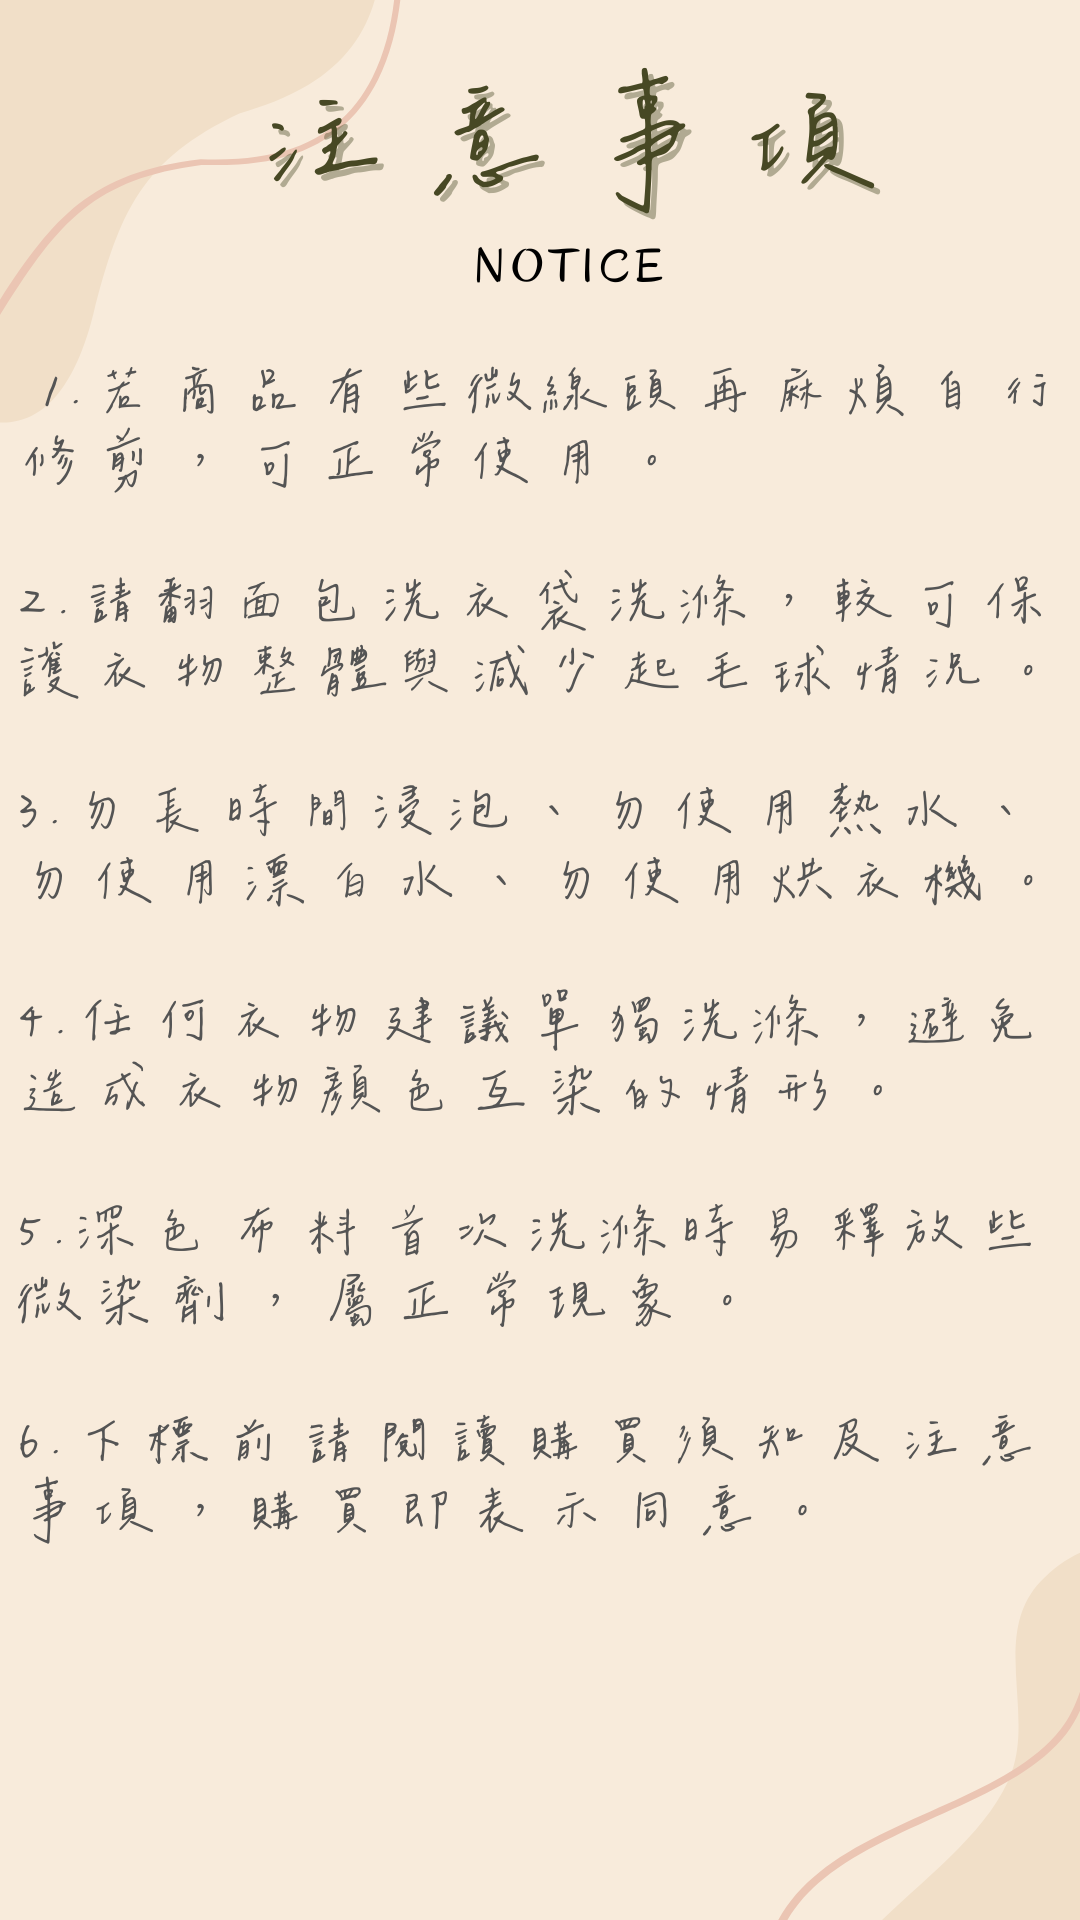 注意事項
NOTICE
1.若商品有些微線頭再麻煩自行
修剪，可正常使用。
2.請翻面包洗衣袋洗滌，較可保
護衣物整體與減少起毛球情況。
3.勿長時間浸泡、勿使用熱水、
勿使用漂白水、勿使用烘衣機。
4.任何衣物建議單獨洗滌，避免
造成衣物顏色互染的情形。
5.深色布料首次洗滌時易釋放些
微染劑，屬正常現象。
6.下標前請閱讀購買須知及注意
事項，購買即表示同意。